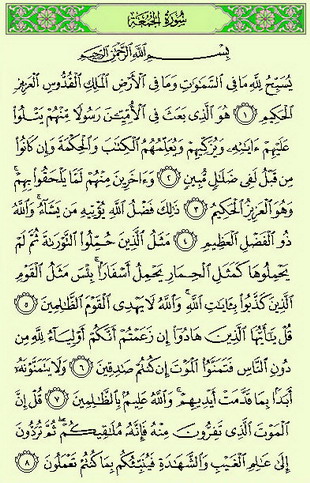 سُورَةُ الجُمُعَةِ
بِسْمِ اللَّهِ الرَّحْمَٰنِ الرَّحِيمِ
يُسَبِّحُ لِلَّهِ مَا فِي السَّمَٰوَٰتِ وَمَا فِي الْأَرْضِ الْمَلِكِ الْقُدُّوسِ الْعَزِيزِ
الْحَكِيمِ ١ هُوَ الَّذِي بَعَثَ فِي الْأُمِّيِّـۧنَ رَسُولًا مِّنْهُمْ يَتْلُوا
عَلَيْهِمْ ءَايَٰتِهِۦ وَيُزَكِّيهِمْ وَيُعَلِّمُهُمُ الْكِتَٰبَ وَالْحِكْمَةَ وَإِن كَانُوا
مِن قَبْلُ لَفِي ضَلَٰلٍ مُّبِينٍ ٢ وَءَاخَرِينَ مِنْهُمْ لَمَّا يَلْحَقُوا بِهِمْ ۚ
وَهُوَ الْعَزِيزُ الْحَكِيمُ ٣ ذَٰلِكَ فَضْلُ اللَّهِ يُؤْتِيهِ مَن يَشَآءُ ۚ وَاللَّهُ
ذُو الْفَضْلِ الْعَظِيمِ ٤ مَثَلُ الَّذِينَ حُمِّلُوا التَّوْرَىٰةَ ثُمَّ لَمْ
يَحْمِلُوهَا كَمَثَلِ الْحِمَارِ يَحْمِلُ أَسْفَارًۢا ۚ بِئْسَ مَثَلُ الْقَوْمِ
الَّذِينَ كَذَّبُوا بِـَٔايَٰتِ اللَّهِ ۚ وَاللَّهُ لَا يَهْدِي الْقَوْمَ الظَّٰلِمِينَ ٥
قُلْ يَٰٓأَيُّهَا الَّذِينَ هَادُوٓا إِن زَعَمْتُمْ أَنَّكُمْ أَوْلِيَآءُ لِلَّهِ مِن
دُونِ النَّاسِ فَتَمَنَّوُا الْمَوْتَ إِن كُنتُمْ صَٰدِقِينَ ٦ وَلَا يَتَمَنَّوْنَهُۥٓ
أَبَدًۢا بِمَا قَدَّمَتْ أَيْدِيهِمْ ۚ وَاللَّهُ عَلِيمٌۢ بِالظَّٰلِمِينَ ٧ قُلْ إِنَّ
الْمَوْتَ الَّذِي تَفِرُّونَ مِنْهُ فَإِنَّهُۥ مُلَٰقِيكُمْ ۖ ثُمَّ تُرَدُّونَ
إِلَىٰ عَٰلِمِ الْغَيْبِ وَالشَّهَٰدَةِ فَيُنَبِّئُكُم بِمَا كُنتُمْ تَعْمَلُونَ ٨